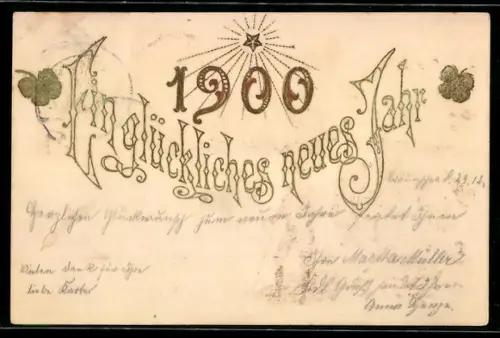 1900
Ein glückliches neues Jahr
d. 29.12.
Herzlichen Glückwunsch zum neuen Jahre sendet Ihnen
Ihre Martha Müller
Vielen Dank für Ihre
liebe Karte
Viel Grüße sendet Ihnen
Anna